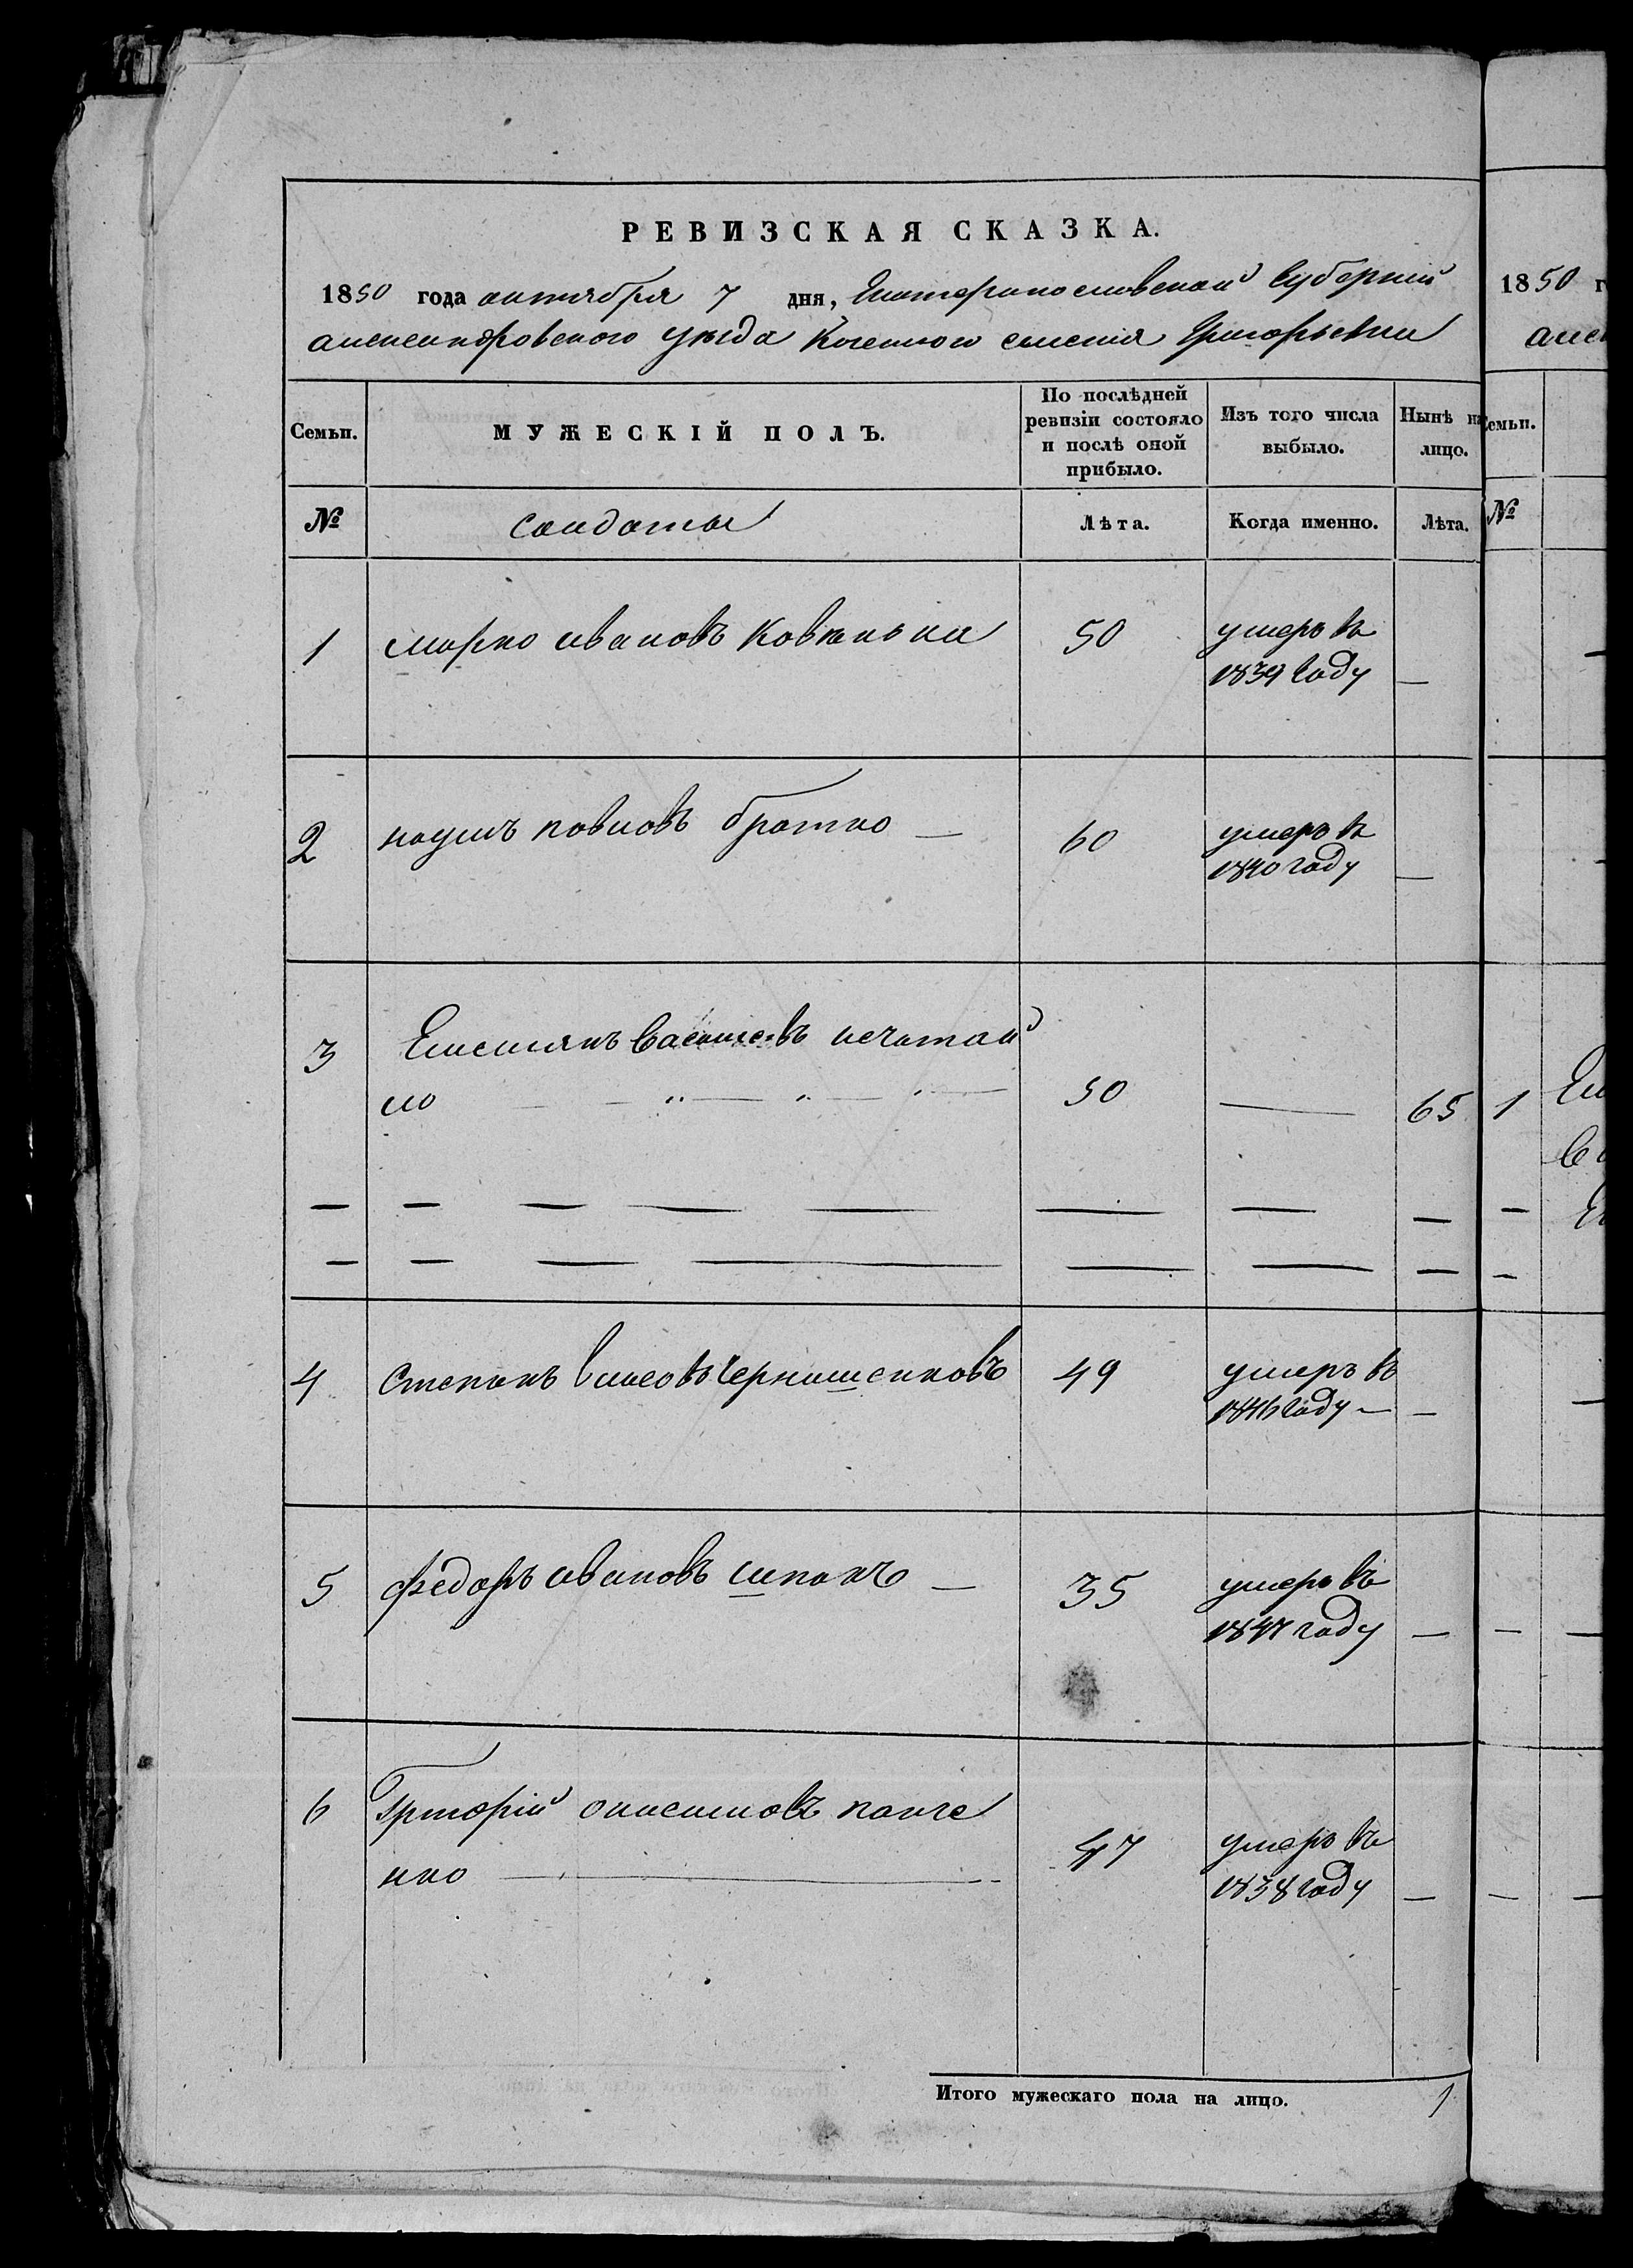 РЕВИЗСКАЯ СКАЗКА.
1850 года октября 7 дня, Екатеринославской Губернии
александровского уезда Казенного селения Григорьевки
Семьи.
МУЖЕСКІЙ ПОЛЪ.
По послѣдней
ревизіи состояло
и послѣ оной
прибыло.
Изъ того числа
выбыло.
Нынѣ на
лицо.
№
солдаты
Лѣта.
Когда именно.
Лѣта.
1 марко ивановъ 50 умеръ въ
1839 году —
2 наумъ павловъ братко — 60 умеръ въ
1840 году —
3 Емельянъ Васильевъ нечитай
ло 50 — 65
4 степанъ власовъ Чернышенковъ 49 умеръ въ
1846 году — —
5 федоръ ивановъ шпакъ — 35 умеръ въ
1847 году —
6 Григорій онисимовъ панче
нко 47 умеръ въ
1838 году —
Итого мужескаго пола на лицо. 1
1850 г
алек
Семьи.
№
1